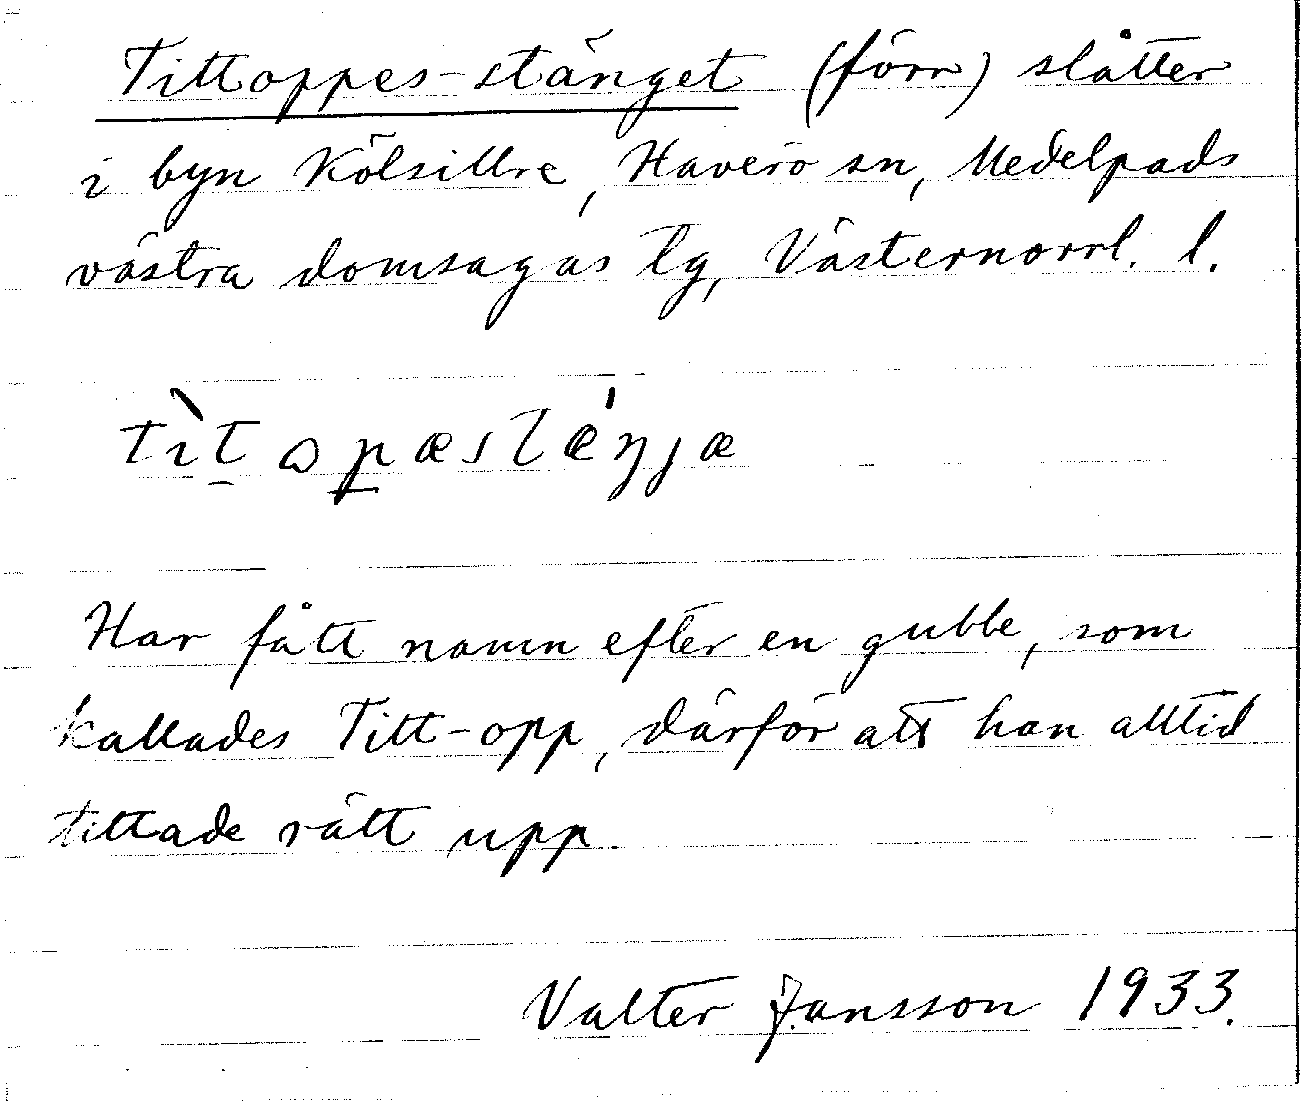 Tittoppes-stänget (förr) slåtter
i byn Kölsillre, Haverö sn, Medelpads
västra domsagas tg, Västernorrl. l.
tìt̲ɷp̲æstæ̍ŋjæ
Har fått namn efter en gubbe, som
kallades Titt-opp, därför att han alltid
tittade rätt upp.
Valter Jansson 1933.